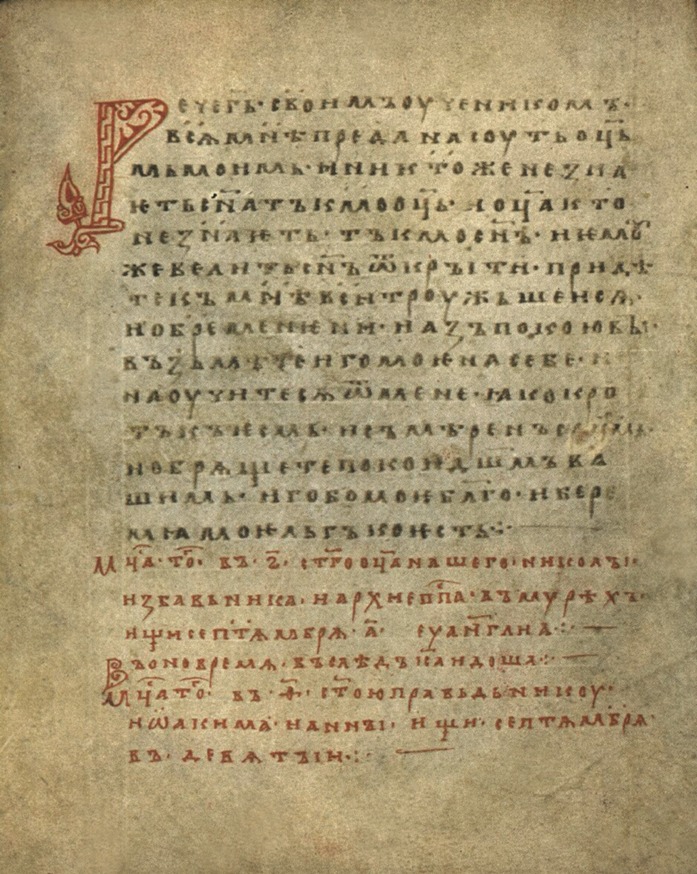 Рече г҃ь · своимъ оученикомъ ·
вся мнѣ прѣдана соуть оц҃ь
мь моимь · и никтоже не зна
ѥть сн҃а тъкмо оц҃ь · и оц҃а кто
не знаѥть · тъкмо сн҃ъ · и ѥмоу
же велить сн҃ъ ѿкръıти · придѣ
те къ мнѣ вси троужьшеися ·
и обременении · и азъ покою въı ·
възьмѣте иго моѥ на себе · и
наоучитеся ѿ мене · ꙗко кро
тъкъ ѥсмь · и съмѣренъ
и обрящете покои дш҃амъ ва
шимъ · иго бо моѥ бл҃го · и бере
мя моѥ льгъко ѥсть ·:·
Мц҃а · то҃ · въ · ѕ҃ · ст҃го оц҃а нашего · николъı ·
избавьника · и архиеп҃па · въ мурѣхъ ·
ищи септѧбрѧ · а҃ · еуан҃глиѥ ·:·
Въ оно времѧ · въ слѣдъ
Мц҃а то҃ · въ · ѳ҃ · ст҃ою правьдьникоу ·
иѡакима · и аннъı · ищи · септѧмбрѧ
въ · девѧтъıи ·:·